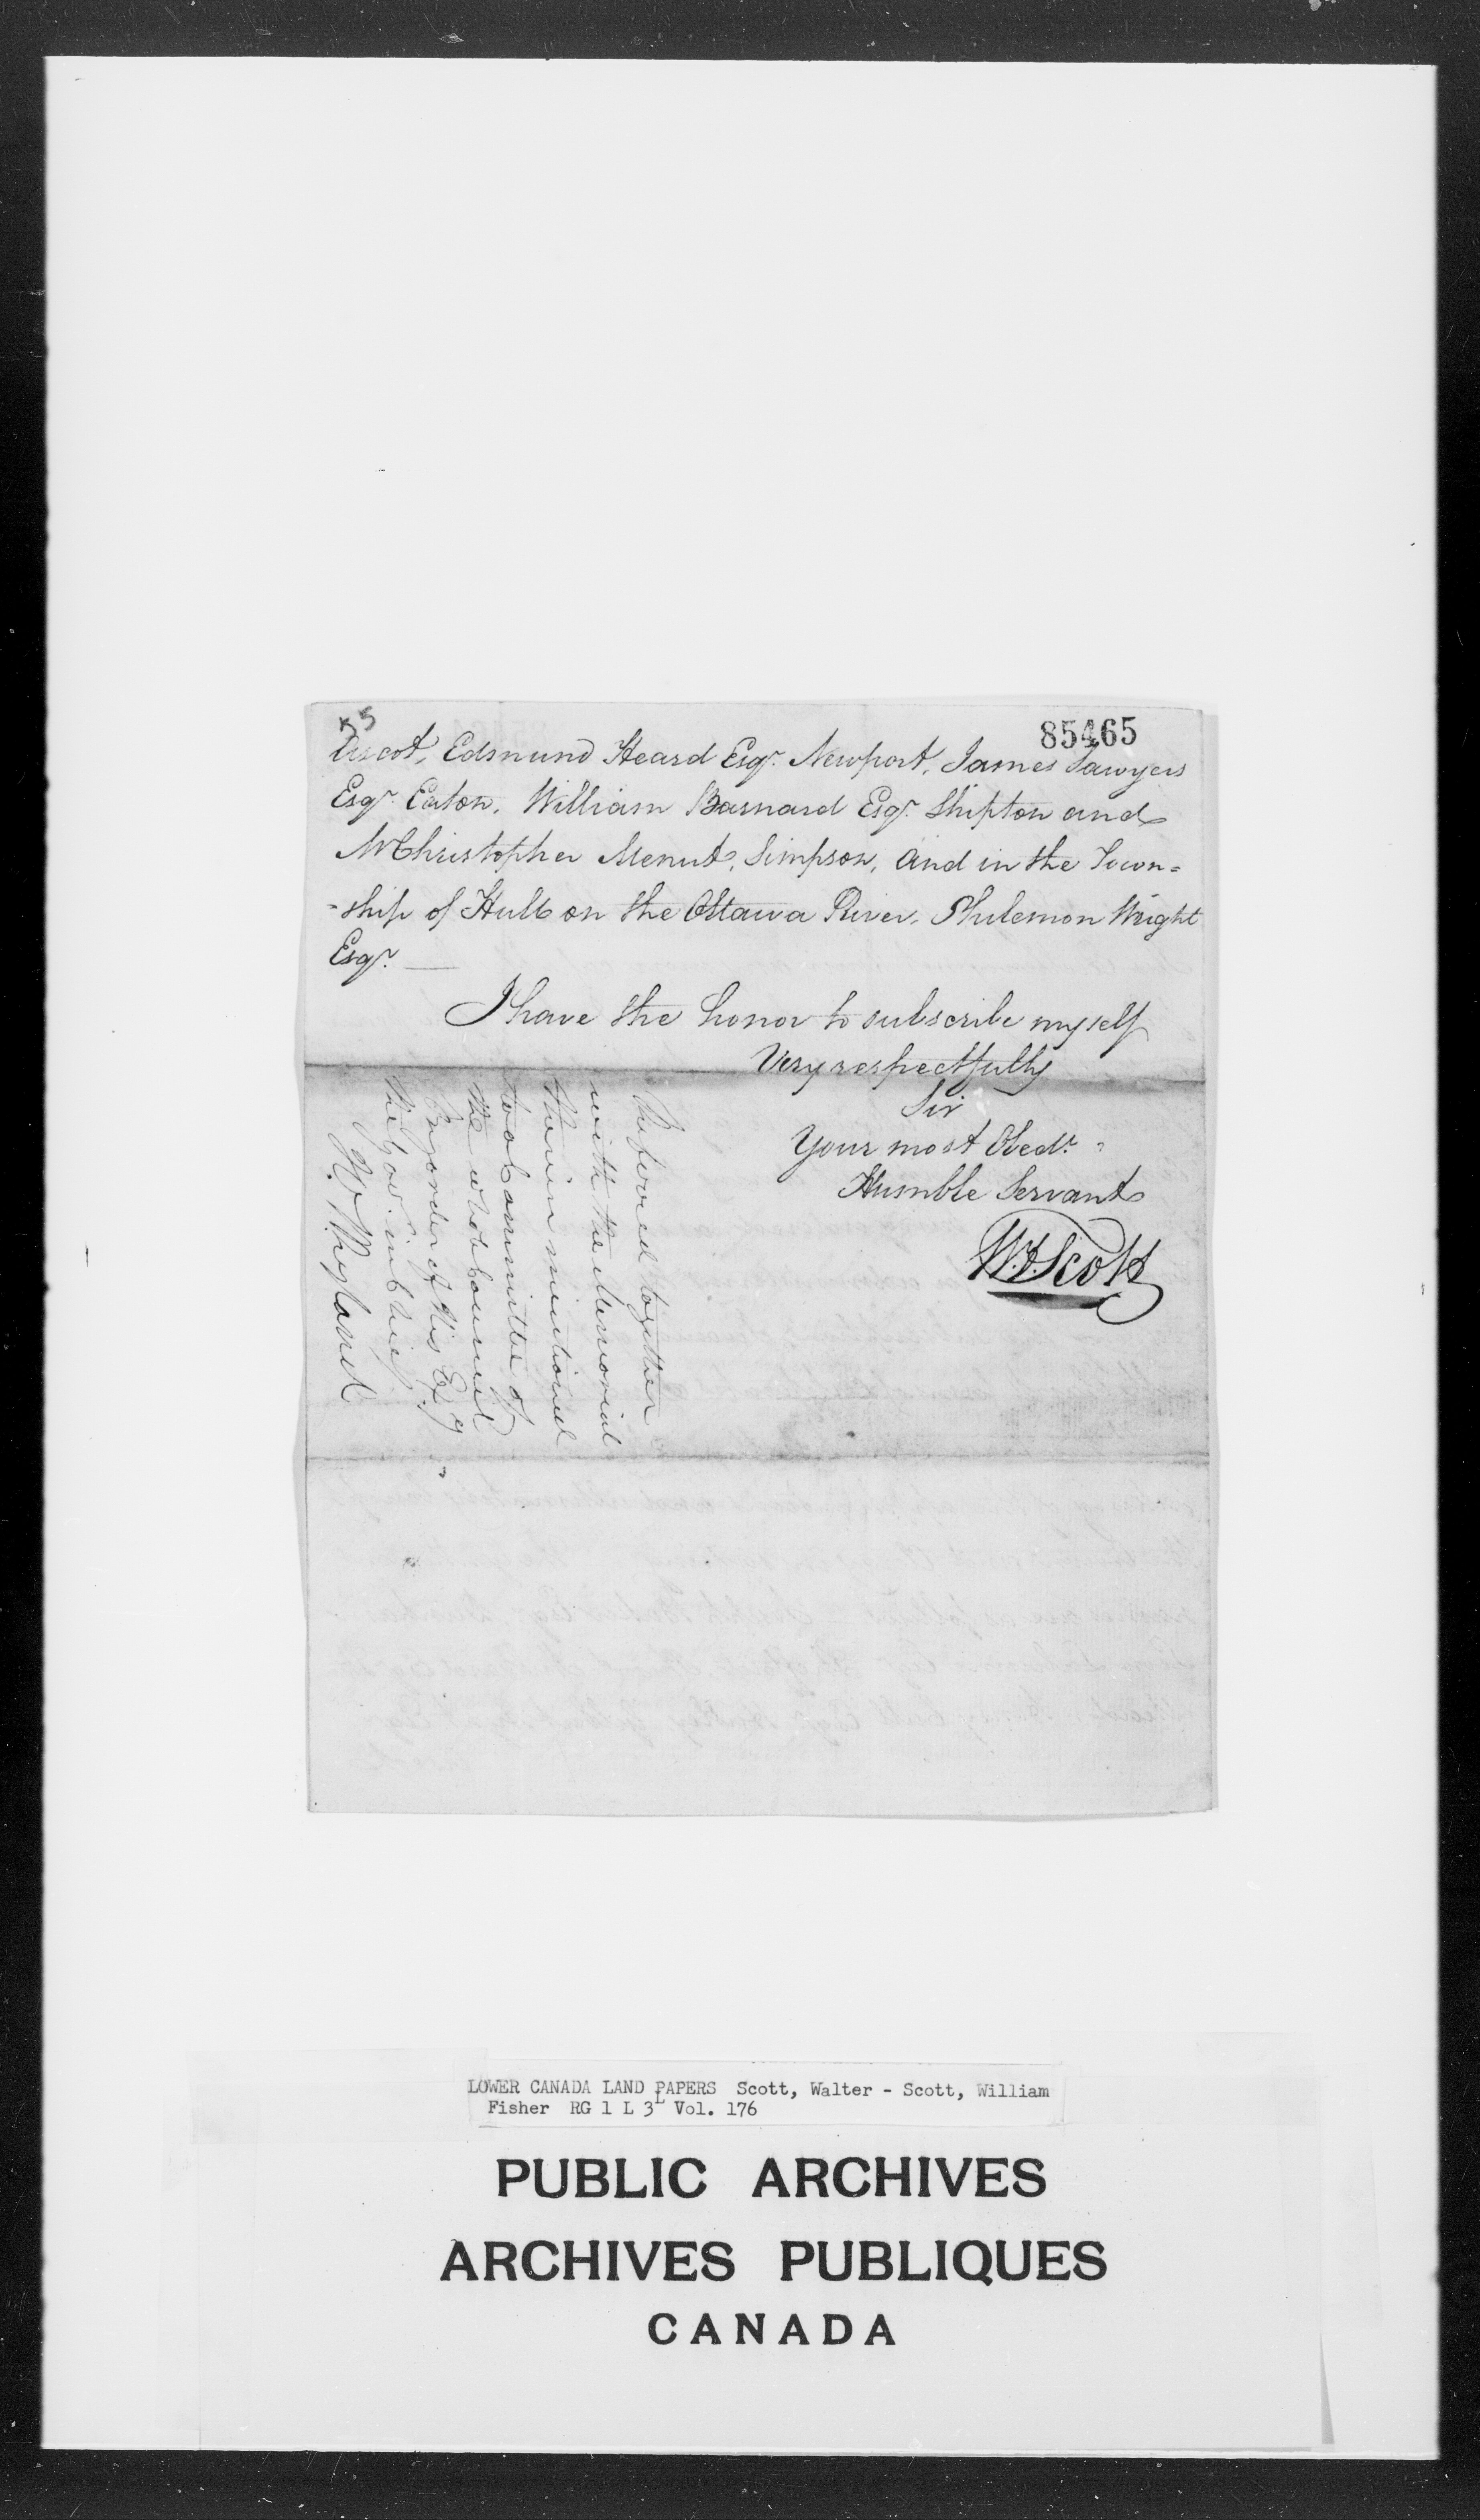 85465
Ascot, Edmund Heard Esqr. Newport, James Sawyers
Esqr. Eaton, William Barnard Esqr. Shipton and
Mr Christopher Menut, Simpson, and in the Town=
-ship of Hull on the Ottawa River, Philemon Wright
Esqr.
I have the honor to subscribe myself
Very respectfully
Sir
Your most Obedt.
Humble Servant
Wm. Scott
Referred together
with the Memorial
therein mentioned
to a Committee of
the whole Council
By order of His Exy
the Gov. in Chief
H. W. Ryland
LOWER CANADA LAND PAPERS Scott, Walter - Scott, William
Fisher RG 1 L 3L Vol. 176
PUBLIC ARCHIVES
ARCHIVES PUBLIQUES
CANADA